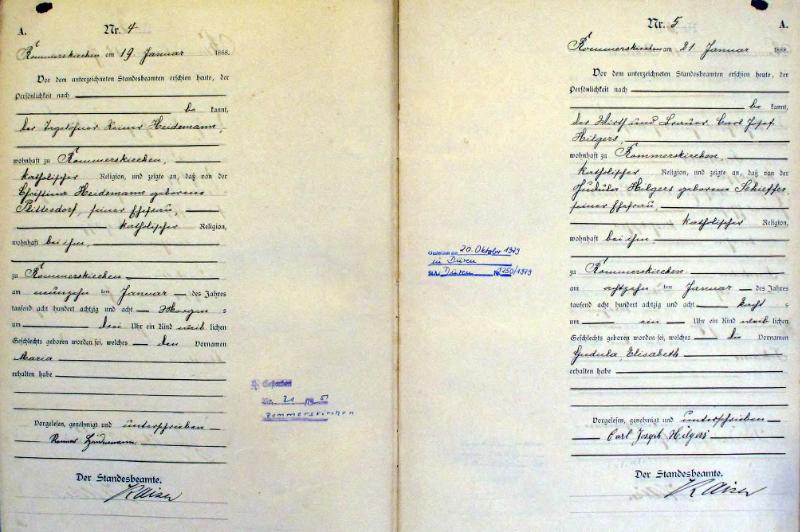 A.
Nr. 4
Rommerskirchen am 19. Januar 1888.
Vor dem unterzeichneten Standesbeamten erschien heute, der
Persönlichkeit nach
be kannt,
der Tagelöhner Reiner Heidemann,
wohnhaft zu Rommerskirchen,
katholischer Religion, und zeigte an, daß von der
Christina Heidemann geborene
seiner Ehefrau,
katholischer Religion,
wohnhaft bei ihm,
zu Rommerskirchen
am neunzehn ten Januar des Jahres
tausend acht hundert achtzig und acht Morgens
um drei Uhr ein Kind weib lichen
Geschlechts geboren worden sei, welches den Vornamen
Maria
erhalten habe
Vorgelesen, genehmigt und unterschrieben
Reiner Heidemann
Der Standesbeamte.
Kaiser
Gestorben
Nr. 20
Rommerskirchen
Nr. 5
Rommerskirchen am 21. Januar 1888.
Vor dem unterzeichneten Standesbeamten erschien heute, der
Persönlichkeit nach
be kannt,
der Wirth und Brauer Carl Josef
Hilgers,
wohnhaft zu Rommerskirchen,
katholischer Religion, und zeigte an, daß von der
Gudula Hilgers geborene Scheffer
seiner Ehefrau
katholischer Religion,
wohnhaft bei ihm
zu Rommerskirchen
am achtzehn ten Januar des Jahres
tausend acht hundert achtzig und acht
um ein Uhr ein Kind weib lichen
Geschlechts geboren worden sei, welches die Vornamen
Gudula, Elisabeth
erhalten habe
Vorgelesen, genehmigt und unterschrieben
Carl Joseph Hilgers
Der Standesbeamte.
Kaiser
20. Oktober 1979
in Düren
Düren Nr. 1250/1979